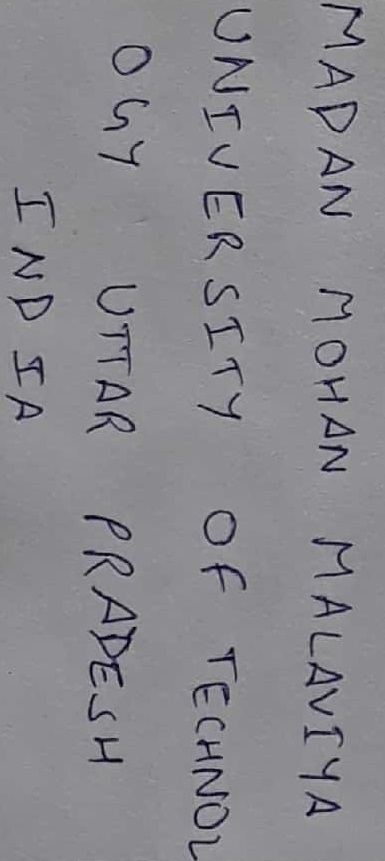 MADAN MOHAN MALAVIYA
UNIVERSITY OF TECHNOL
OGY UTTAR PRADESH
INDIA